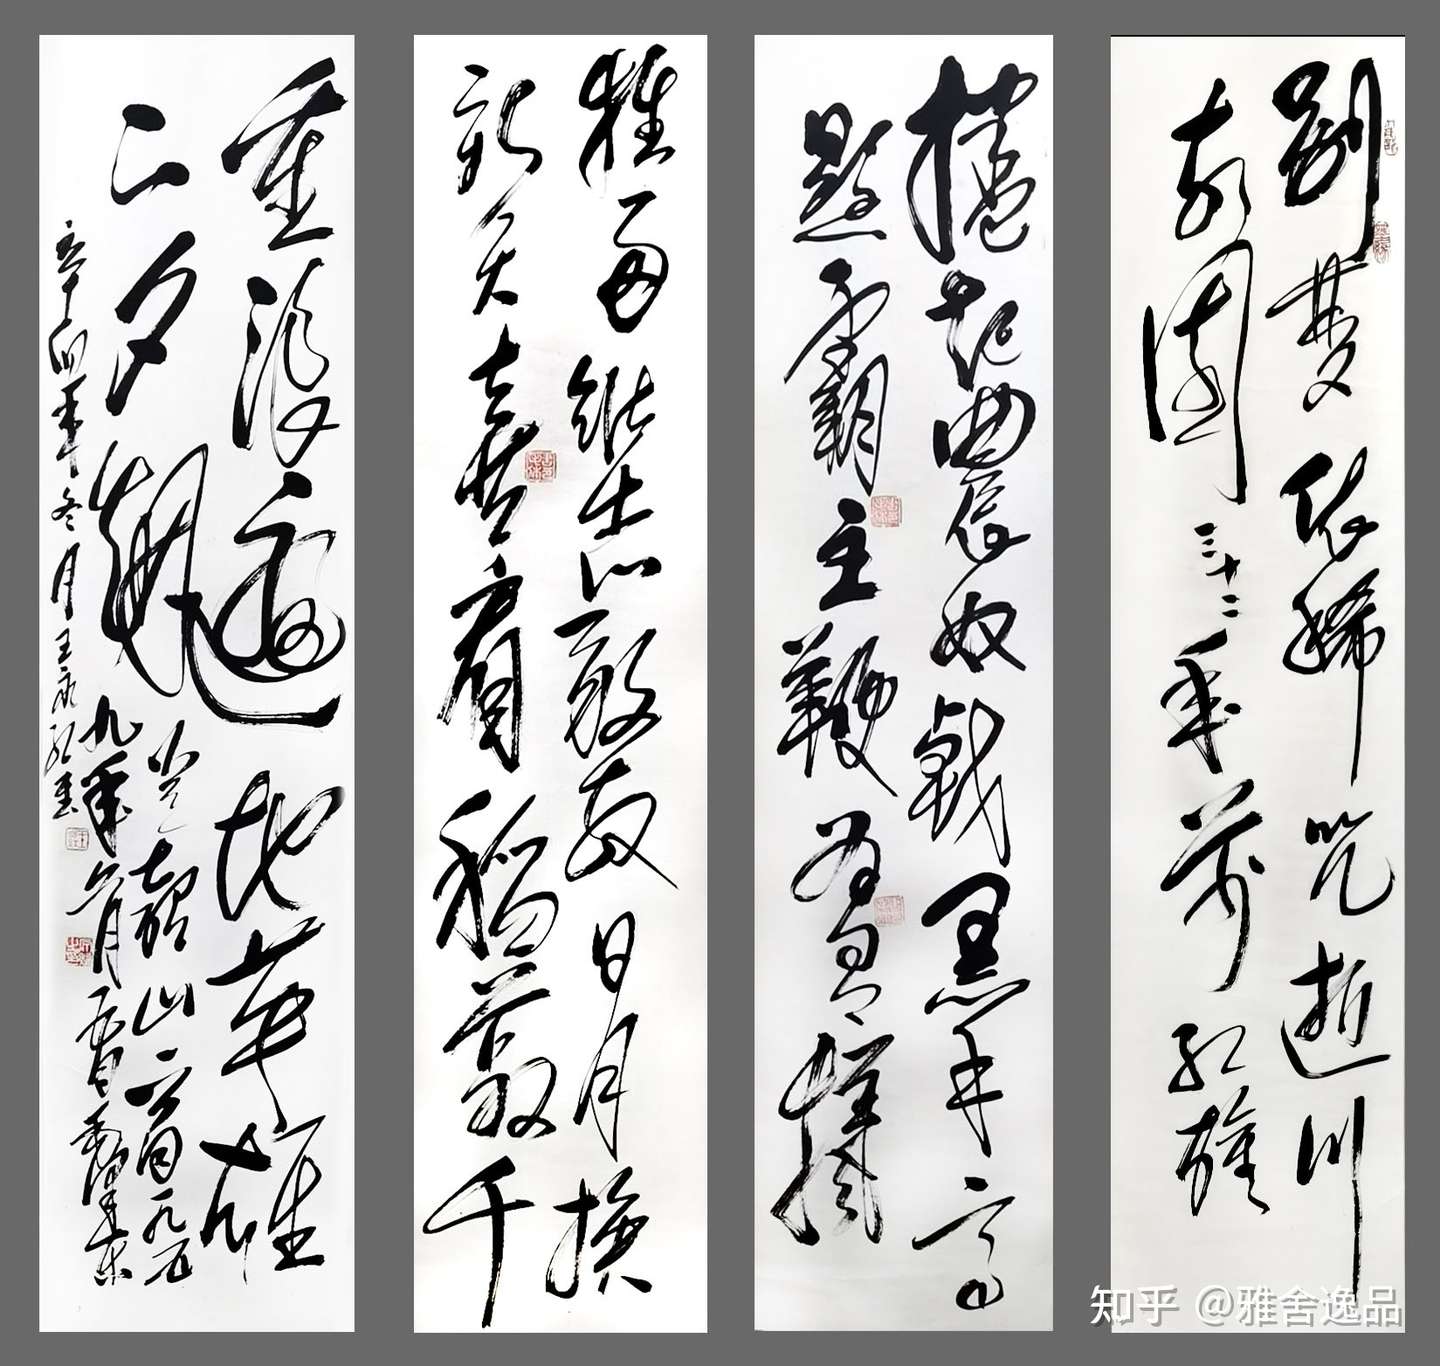 别梦依稀咒逝川
故园三十二年前红旗
捲起農奴戟黑手高
懸霸主鞭為有犧
牲多壮志敢教日月换
新天喜看稻菽千
重浪遍地英雄
下夕烟
韶山一首一九五
九年六月毛澤東
辛卯年冬月王永红書
知乎 @雅舍逸品